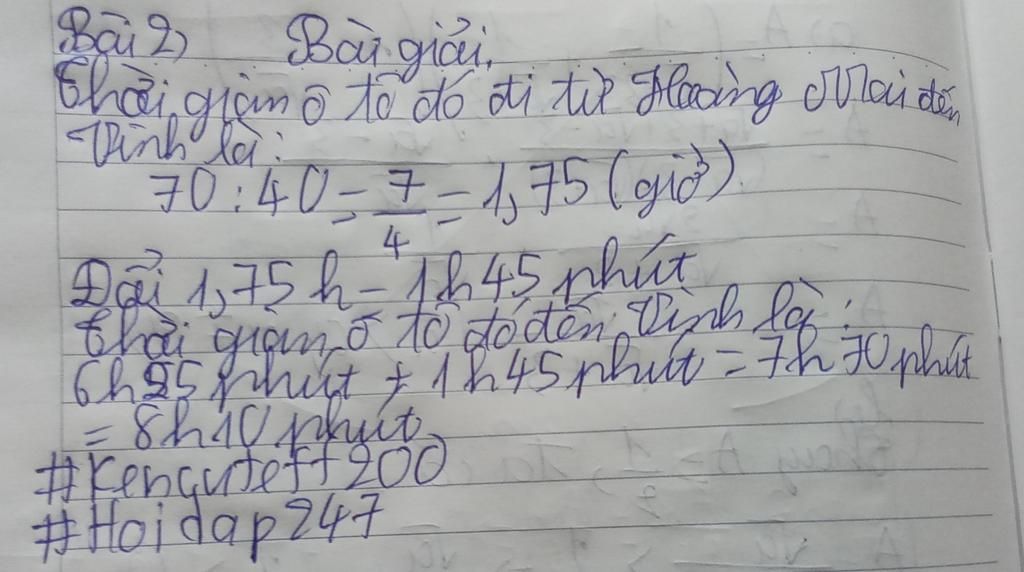 Bài 2) Bài giải.
Thời gian ô tô đó đi từ Hoàng Mai đến
Vinh là:
70 : 40 = 7/4 = 1,75 (giờ).
Đổi 1,75 h = 1h 45 phút
Thời gian ô tô đó đến Vinh là:
6h 25 phút + 1h 45 phút = 7h 70 phút
= 8h 10 phút
#Kencuteff200
#Hoidap247